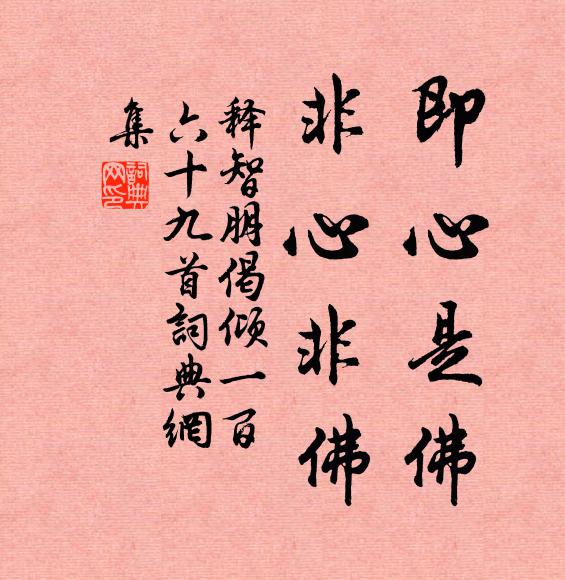 即心是佛
非心非佛
释智朋偈倾一百
六十九首詞典網
集
詞典
网印